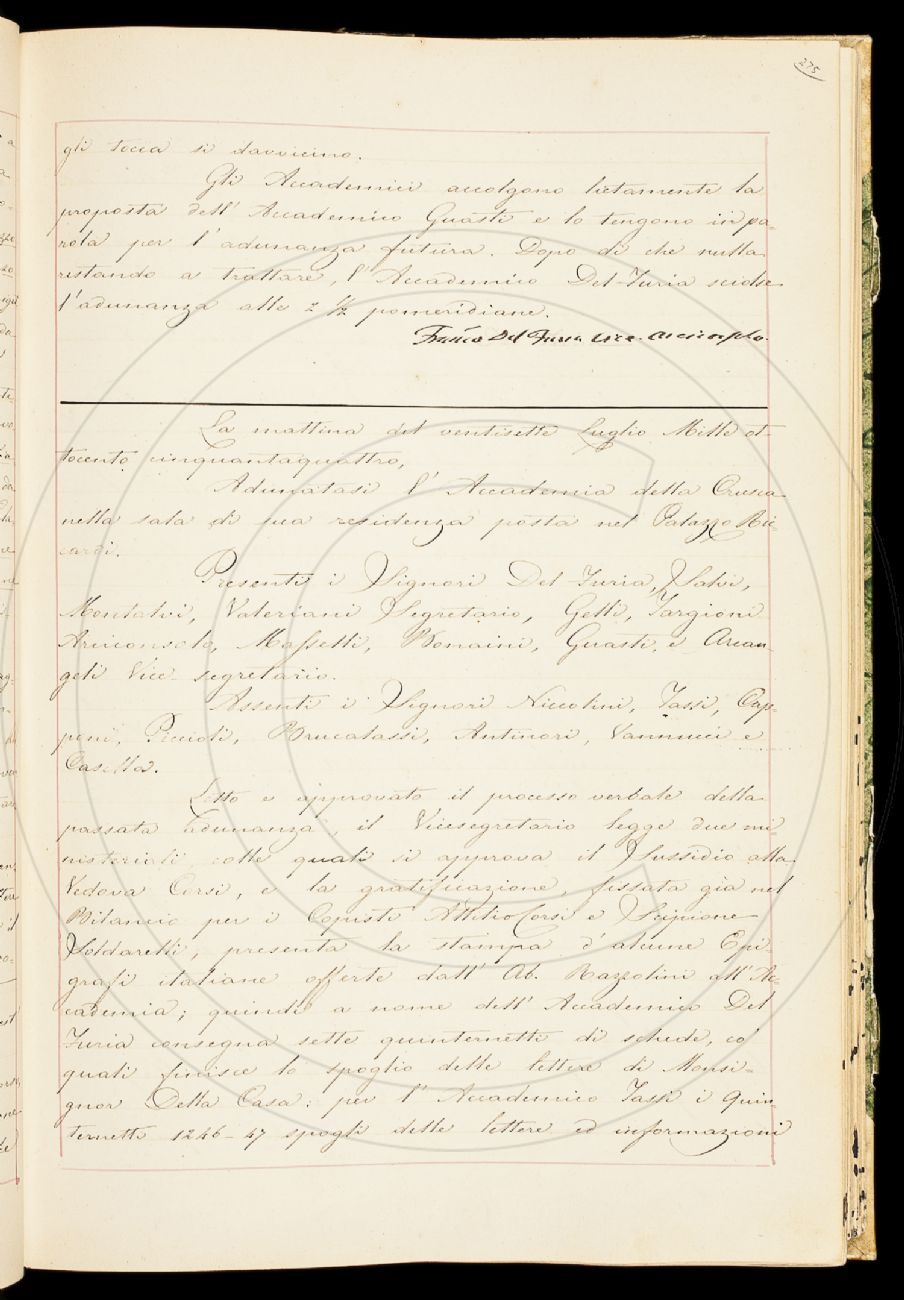 275
gli tocca sì davvicino.
Gli Accademici accolgono lietamente la
proposta dell'Accademico Guasti e lo tengono in pa-
rola per l'adunanza futura. Dopo di che nulla
restando a trattare, l'Accademico Del-Furia sciolse
l'adunanza alle 2 1/2 pomeridiane.
Franco Del Furia vice-Arciconsolo.
La mattina del ventisette Luglio Mille ot-
tocento cinquantaquattro,
Adunatasi l'Accademia della Crusca
nella sala di sua residenza posta nel Palazzo Ric-
cardi.
Presenti i Signori Del-Furia, Salvi,
Montalvi, Valeriani Segretario, Gelli, Targioni
Arciconsolo, Masselli, Bonaini, Guasti, e Arcan-
geli Vice-segretario.
Assenti i Signori Niccolini, Tassi, Cap-
poni, Puccioli, Brucalassi, Antinori, Vannucci e
Casella.
Letto e approvato il processo verbale della
passata adunanza, il Vicesegretario legge due mi-
nisteriali colle quali si approva il Sussidio alla
Vedova Corsi, e la gratificazione, fissata già nel
Bilancio per i Copisti Attilio Corsi e Scipione
Soldarelli, presenta la stampa d'alcune Epi-
grafi italiane offerte dall'Ab. Razzolini all'Ac-
cademia; quindi a nome dell'Accademico Del
Furia consegna sette quinternetti di schede, co'
quali finisce lo spoglio delle lettere di Monsi-
gnor Della Casa: per l'Accademico Tassi i quin-
ternetti 1246-47 spogli delle lettere ed informazioni